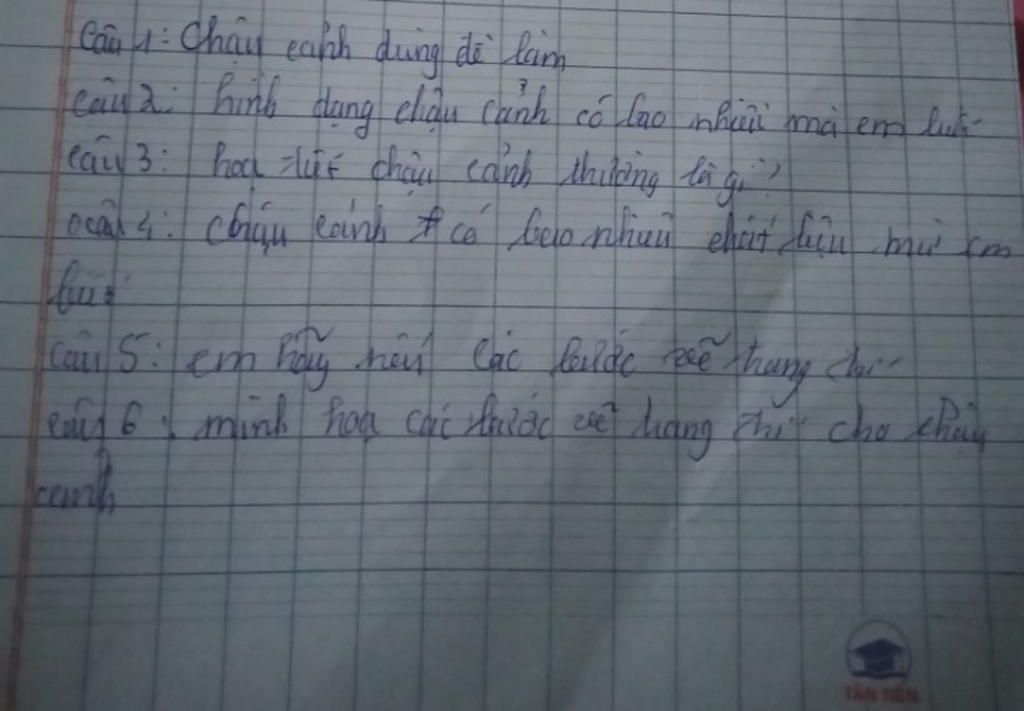 Câu 1: Chậu cảnh dùng để làm
câu 2: hình dạng chậu cảnh có bao nhiêu mà em biết
câu 3: hoạ tiết chậu cảnh thường là gì?
câu 4: chậu cảnh có bao nhiêu chất liệu mà em
biết
câu 5: em hãy nêu các bước vẽ trang trí
câu 6: minh hoạ các bước vẽ trang trí cho chậu
cảnh
TÂN TIẾN